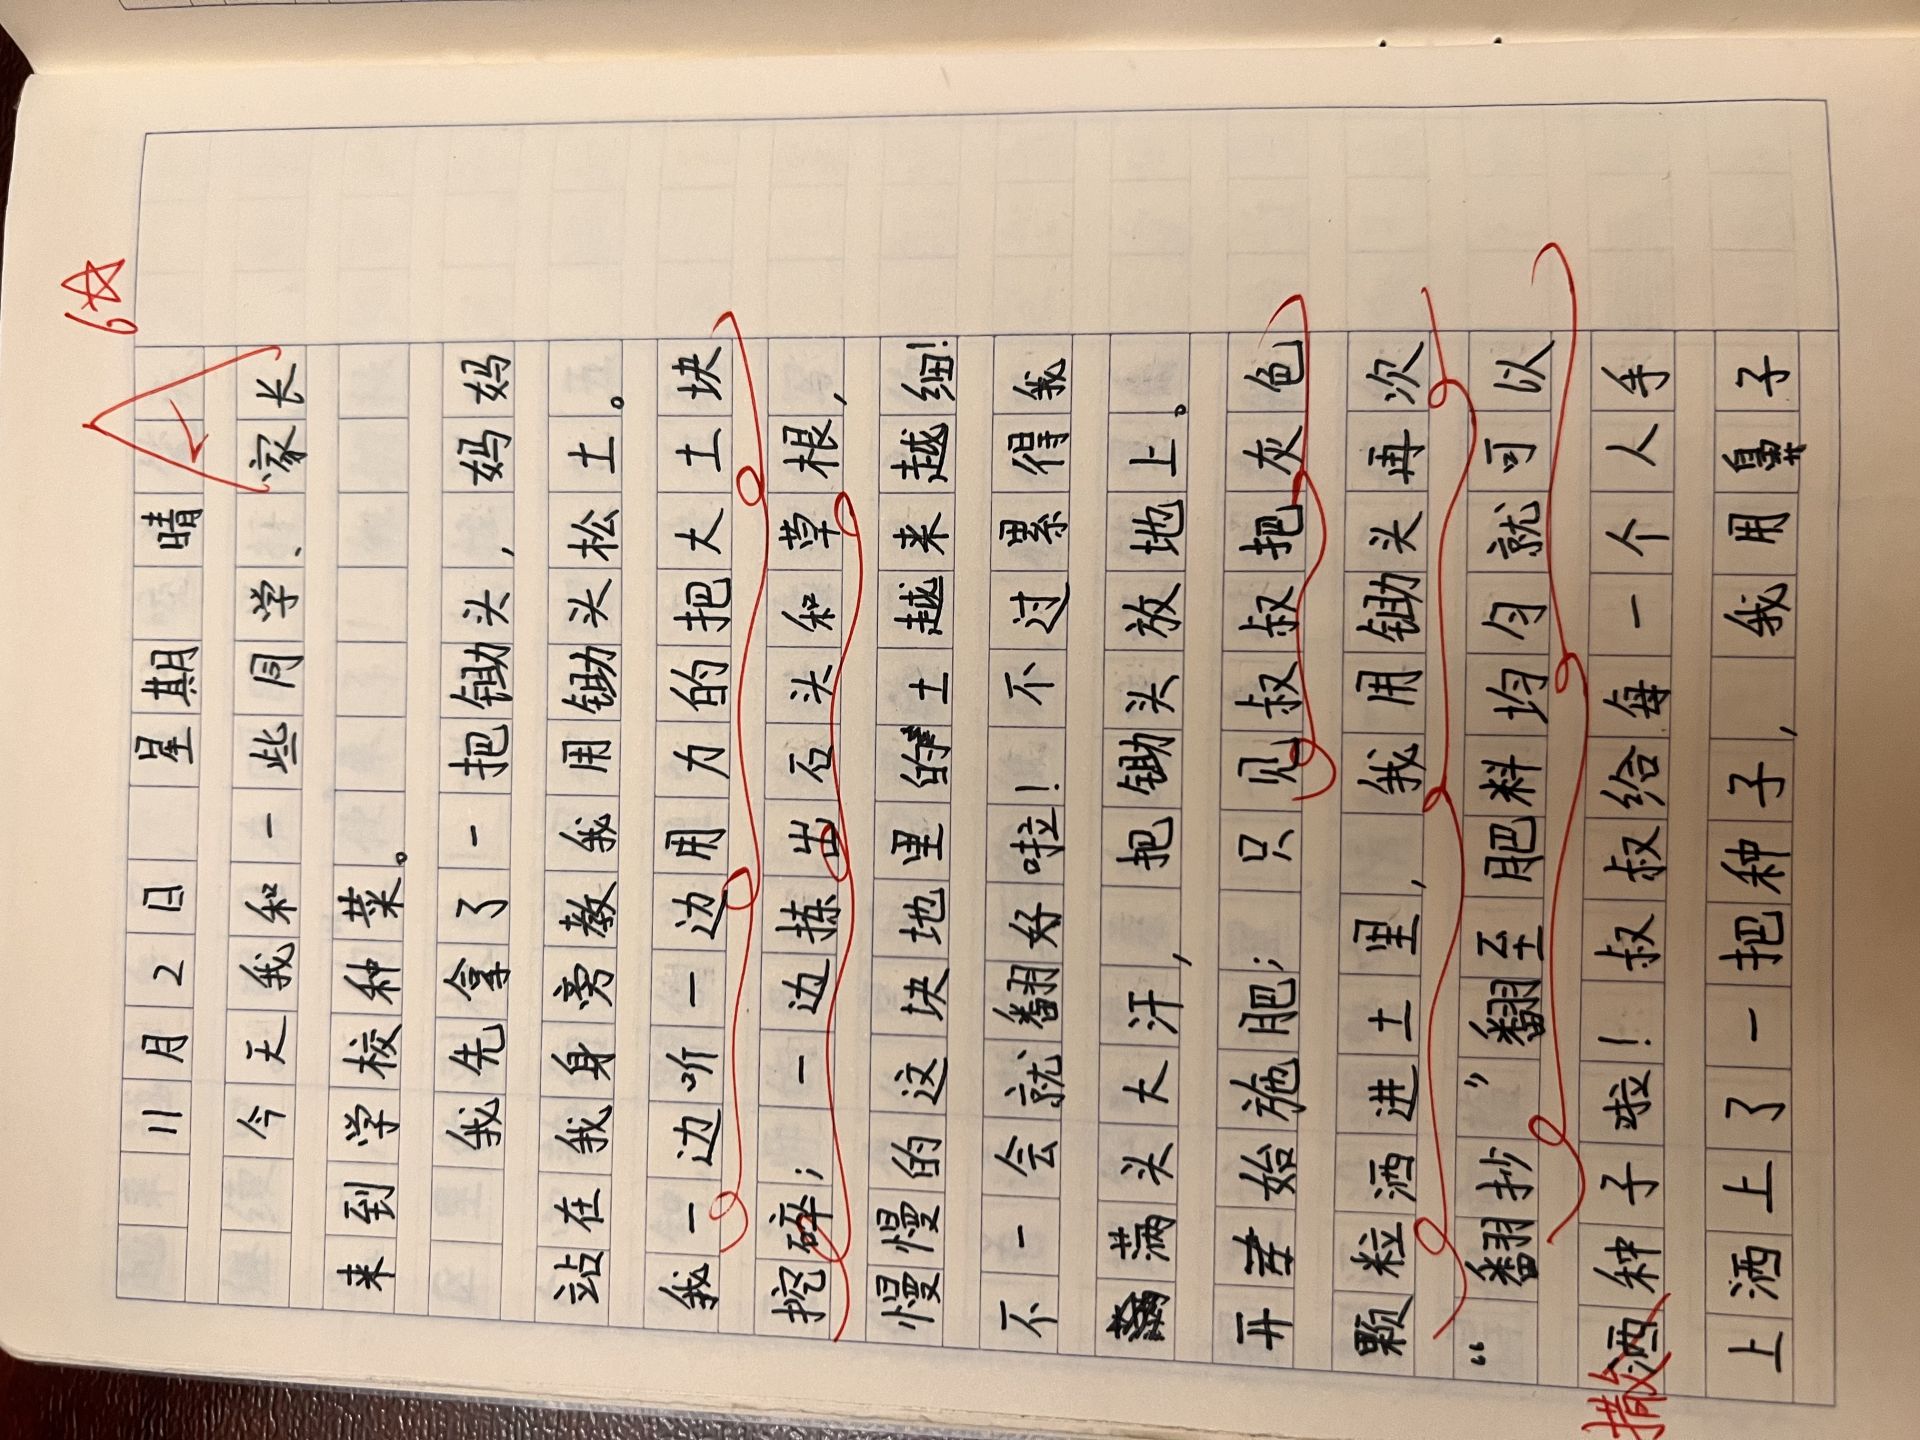 6☆
11月2日 星期 晴
今天我和一些同学、家长
来到学校种菜。
我先拿了一把锄头，妈妈
站在我身旁教我用锄头松土。
我一边听一边用力的把大土块
挖碎；一边拣出石头和草根，
慢慢的这块地里的土越来越细！
不一会就翻好啦！不过累得我
满头大汗，把锄头放地上。
开始施肥；只见叔叔把灰色
颗粒洒进土里，我用锄头再次
“翻抄”翻至肥料均匀就可以
撒
洒种子啦！叔叔给每一个人手
上洒上了一把种子，我用鼻子